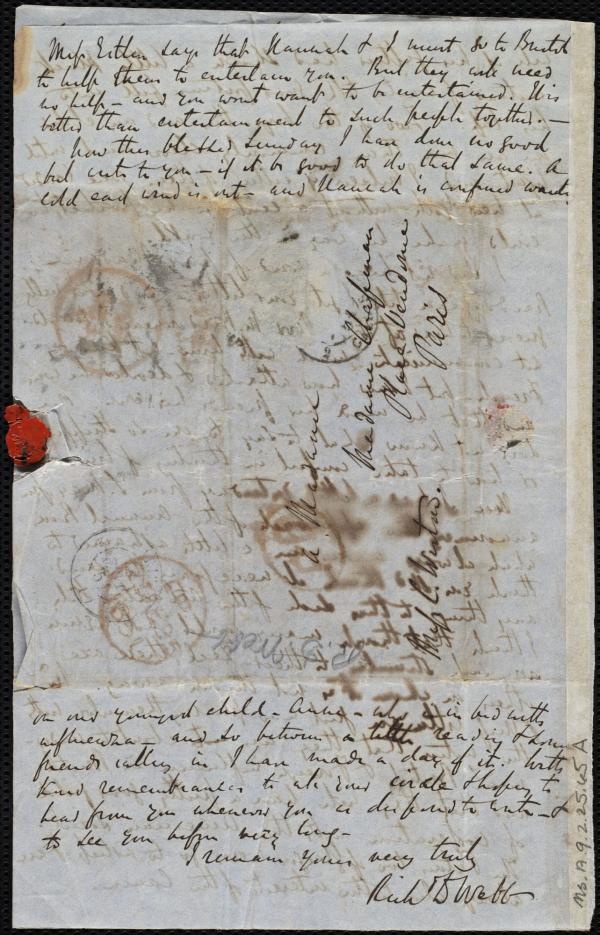 Miss Estlin says that Hannah & I must go to Bristol
to help them to entertain you. But they will need
no help - and you wont want to be entertained. It is
better than entertainment to such people together. -
Now this blessed Sunday I have done no good
but write to you - if it be good to do that same. A
cold east wind is out - and Hannah is confined
à Madame
Madame Chapman
Place Vendôme
Paris
Miss C. Weston.
R. D. Webb
on our youngest child - Anna - who is in bed with
influenza - and so between a little reading & some
friends calling in I have made a day of it. With
kind remembrances to all your circle & hoping to
hear from you whenever you are disposed to write - &
to see you before very long -
I remain yours very truly
Richd D Webb
Ms. A. 9. 2. 25. 45 A